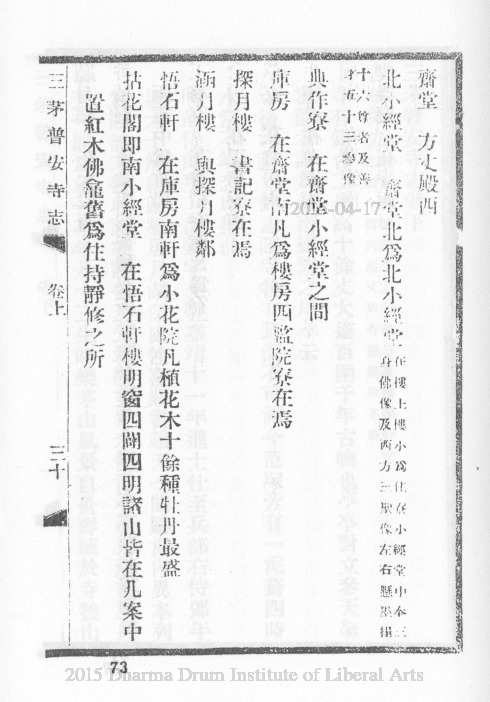 齋堂　方丈殿西
北小經堂　齋堂北爲北小經堂在樓上樓小爲住寮小經堂中奉三
身佛像及西方三聖像左右懸墨搨
十六尊者及善
才五十三參像
典作寮　在齋堂小經堂之間
庫房　在齋堂南凡爲樓房四監院寮在焉
探月樓　書記寮在焉
涵月樓　與探月樓鄰
悟石軒　在庫房南軒爲小花院凡植花木十餘種牡丹最盛
拈花閣即南小經堂　在悟石軒樓明窗四闢四明諸山皆在几案中
置紅木佛龕舊爲住持靜修之所
三茅普安寺志　卷上　三十
2015-04-17
73
2015 Dharma Drum Institute of Liberal Arts